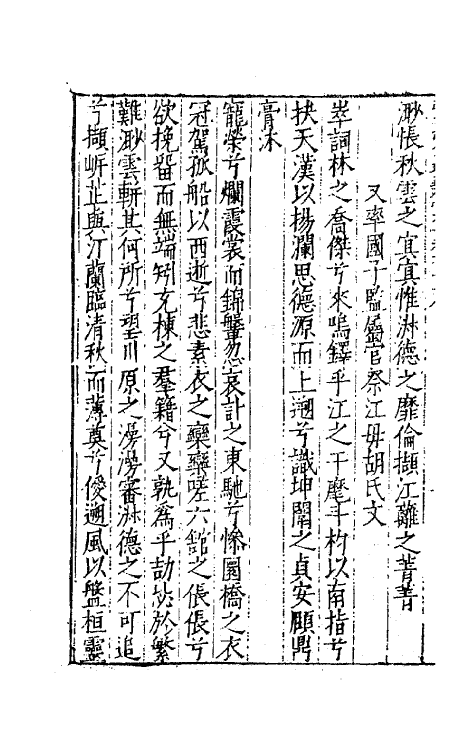 渺悵秋雲之寘寘惟淋德之靡倫擷江蘺之菁菁
又率國子監屬官祭江毋胡氏文
崒詞林之喬傑兮來鳴鐸乎江之干麾斗杓以南指兮
抉天漢以揚瀾思德源而上遡兮識坤闈之貞安願鼎
膏沐
寵榮兮爛霞裳而錦鞶忽哀訃之東馳兮慘圜橋之衣
冠駕孤船以西逝兮悲素衣之欒欒嗟六館之倀倀兮
欲挽畱而無端矧充棟之羣籍兮又孰爲乎劼毖於繁
難渺雲輧其何所兮望川原之漫漫審淋德之不可追
兮擷岸芷與汀蘭臨清秋而薄奠兮傻遡風以盤桓靈